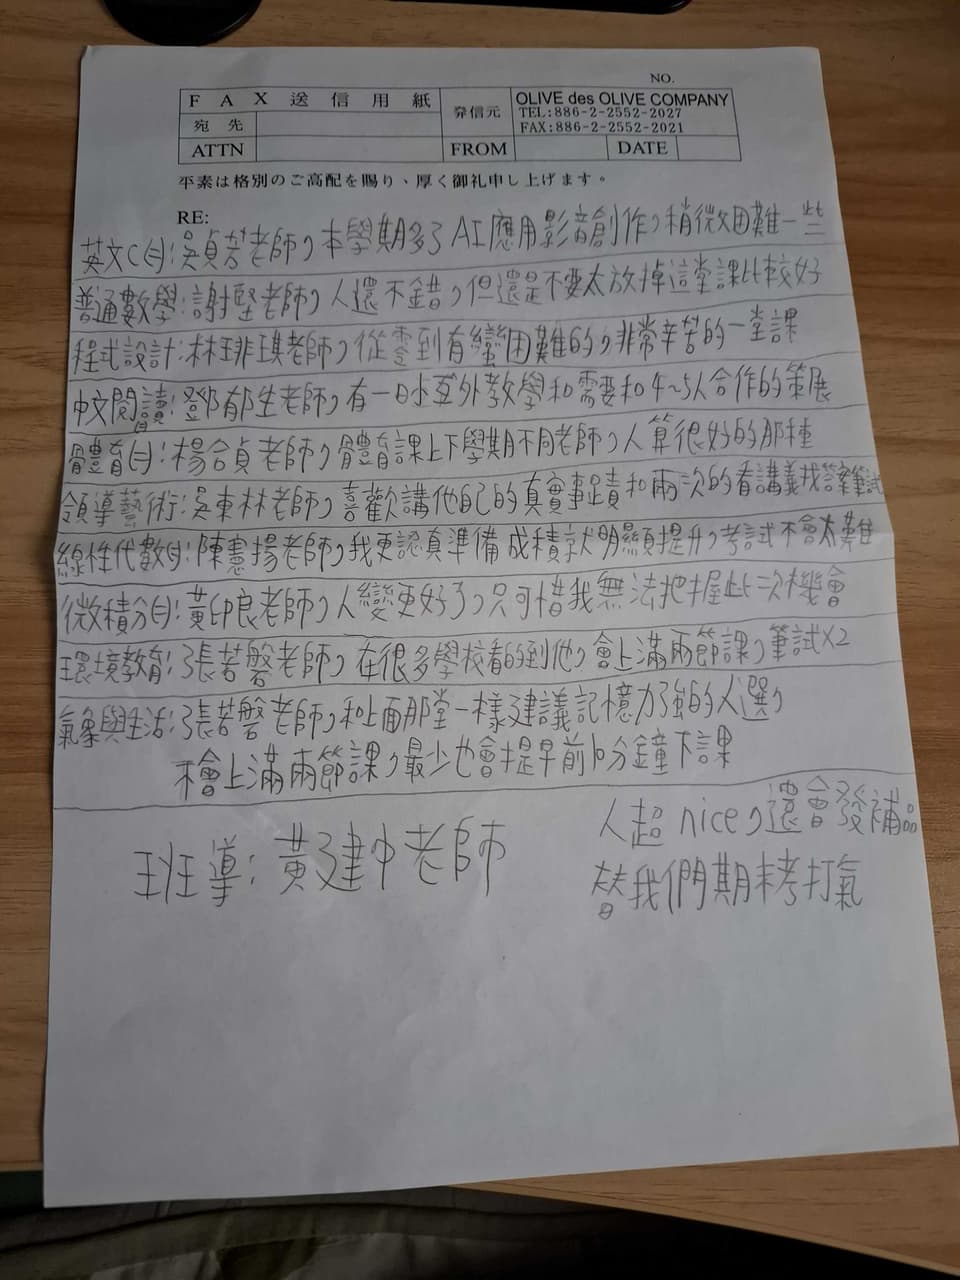 NO.
FAX送信用紙
発信元
OLIVE des OLIVE COMPANY
TEL:886-2-2552-2027
FAX:886-2-2552-2021
宛先
ATTN
FROM
DATE
平素は格別のご高配を賜り、厚く御礼申し上げます。
RE:
英文(二):吳貞芳老師,本學期多了AI應用影音創作,稍微困難一些
普通數學:謝堅老師,人還不錯,但還是不要太放掉這堂課比較好
程式設計:林琲琪老師,從零到有蠻困難的,非常辛苦的一堂課
中文閱讀:鄧郁生老師,有一日校外教學和需要和4~5人合作的策展
體育(二):楊合貞老師,體育課上下學期不同老師,人算很好的那種
領導藝術:吳東林老師,喜歡講他自己的真實事蹟和兩次的看講義找答案筆試
線性代數(二):陳憲揚老師,我更認真準備成積就明顯提升,考試不會太難
微積分(二):黃印良老師,人變更好了,只可惜我無法把握此次機會
環境教育:張若磐老師,在很多學校看的到他,會上滿兩節課,筆試X2
氣象與生活:張若磐老師,和上面那堂一樣建議記憶力強的人選,
不會上滿兩節課,最少也會提早前10分鐘下課
班導:黃建中老師
人超nice,還會發補品
替我們期末考打氣